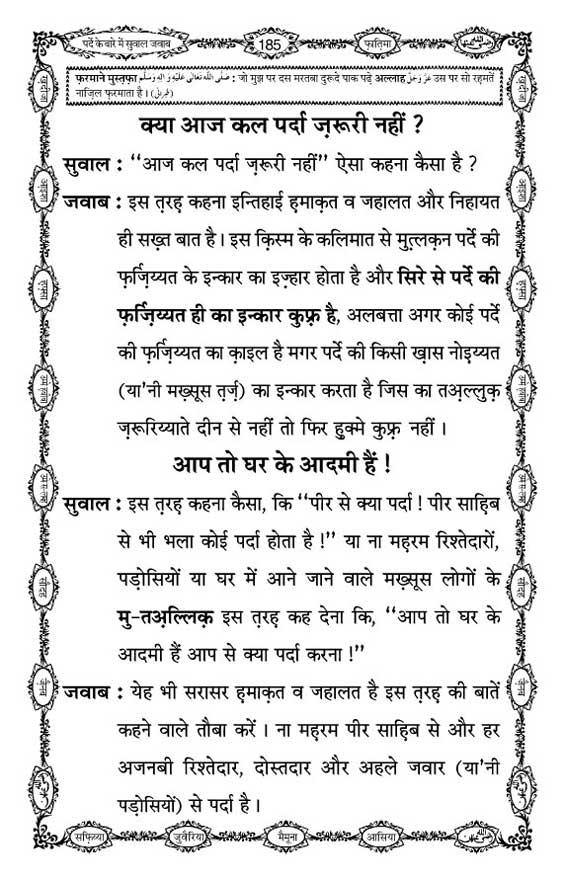 पर्दे के बारे में सुवाल जवाब
185
फ़ातिमा
फ़रमाने मुस्तफ़ा صَلَّى اللهُ تَعَالٰى عَلَيْهِ وَاٰلِهٖ وَسَلَّم : जो मुझ पर दस मरतबा दुरूदे पाक पढ़े अल्लाह عَزَّوَجَلَّ उस पर सो रहमतें
नाज़िल फ़रमाता है । (طبرانی)
क्या आज कल पर्दा ज़रूरी नहीं ?
सुवाल : ‘‘आज कल पर्दा ज़रूरी नहीं’’ ऐसा कहना कैसा है ?
जवाब : इस त़रह़ कहना इन्तिहाई ह़माक़त व जहालत और निहायत
ही सख़्त बात है । इस क़िस्म के कलिमात से मुत़्लक़न पर्दे की
फ़र्ज़िय्यत के इन्कार का इज़्हार होता है और सिरे से पर्दे की
फ़र्ज़िय्यत ही का इन्कार कुफ़्र है, अलबत्ता अगर कोई पर्दे
की फ़र्ज़िय्यत का क़ाइल है मगर पर्दे की किसी ख़ास नोइय्यत
(या'नी मख़्सूस त़र्ज़) का इन्कार करता है जिस का तअ़ल्लुक़
ज़रूरिय्याते दीन से नहीं तो फिर ह़ुक्मे कुफ़्र नहीं ।
आप तो घर के आदमी हैं !
सुवाल : इस त़रह़ कहना कैसा, कि ‘‘पीर से क्या पर्दा ! पीर साह़िब
से भी भला कोई पर्दा होता है !’’ या ना मह़रम रिश्तेदारों,
पड़ोसियों या घर में आने जाने वाले मख़्सूस लोगों के
मु-तअ़ल्लिक़ इस त़रह़ कह देना कि, ‘‘आप तो घर के
आदमी हैं आप से क्या पर्दा करना !’’
जवाब : येह भी सरासर ह़माक़त व जहालत है इस त़रह़ की बातें
कहने वाले तौबा करें । ना मह़रम पीर साह़िब से और हर
अजनबी रिश्तेदार, दोस्तदार और अहले जवार (या'नी
पड़ोसियों) से पर्दा है ।
सफ़िय्या
जुवैरिया
मैमूना
आसिया